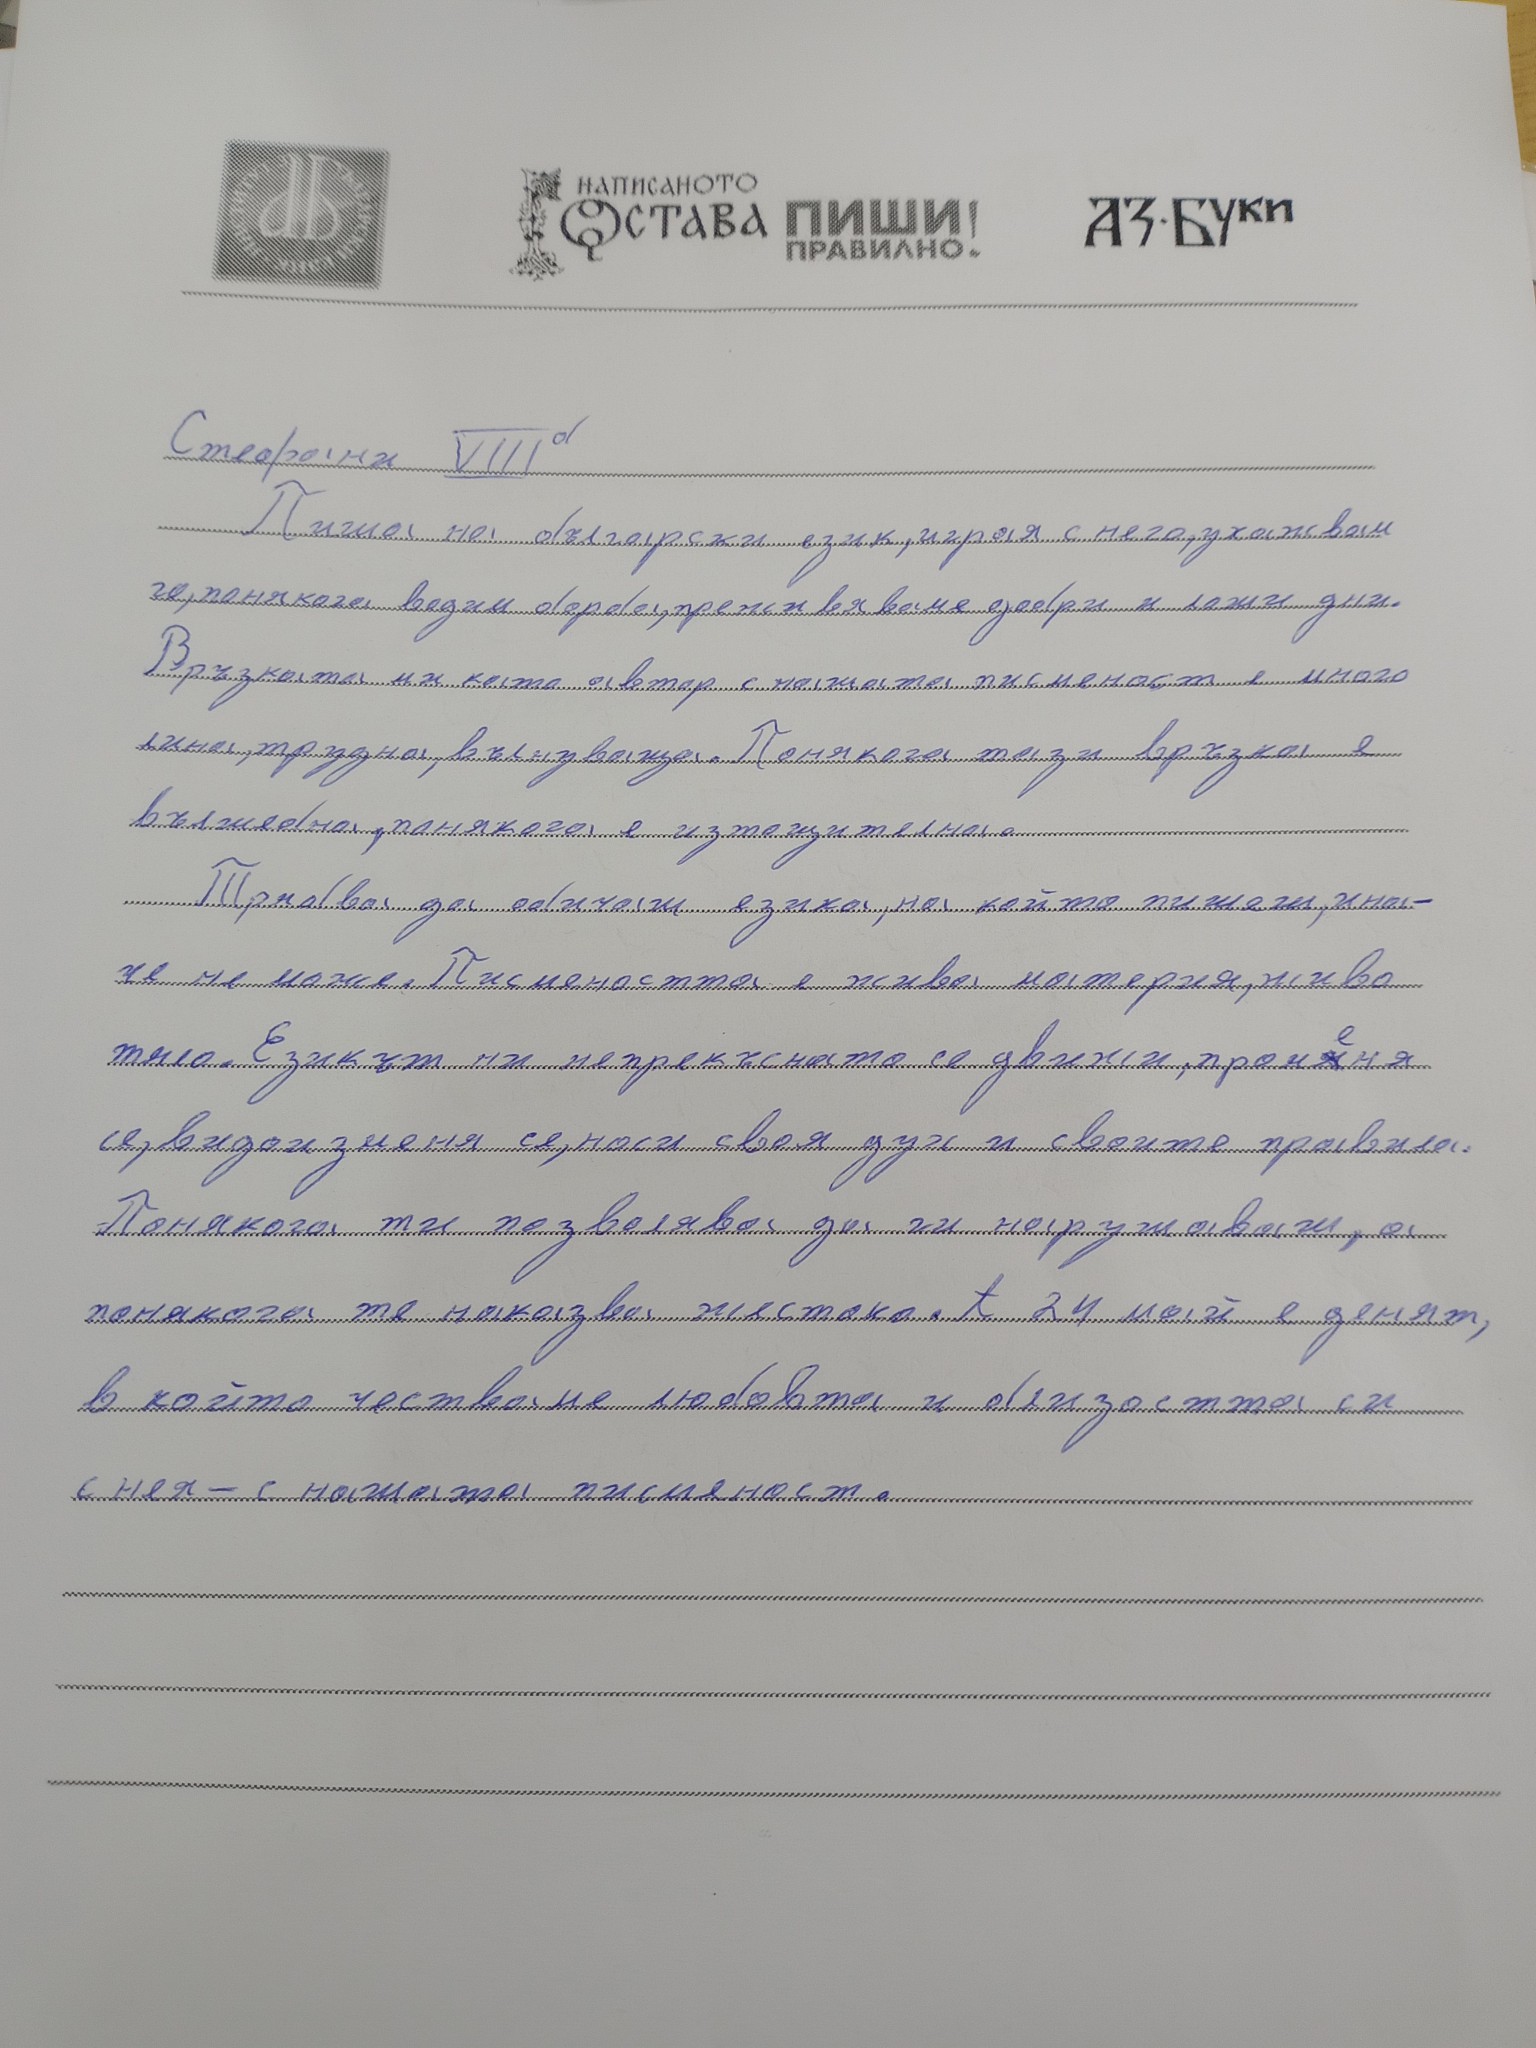 НАПИСАНОТО
ОСТАВА ПИШИ
ПРАВИЛНО!
АЗ·БУКИ
Стефани VIIIб
Пиша на български език, играя с него, ухажвам
го, понякога водим борба, преживяваме добри и лоши дни.
Връзката ми като автор с нашата писменост е много
лина, трудна, вълнуваща. Понякога тази връзка е
вълшебна, понякога е изтощителна.
Трябва да обичаш езика, на който пишеш, ина-
че не може. Писмеността е жива материя, живо
тяло. Езикът ни непрекъснато се движи, променя
се, видоизменя се, носи своя дух и своите правила.
Понякога ти позволява да ги нарушаваш, а
понякога те наказва жестоко. 24 май е денят,
в който честваме любовта и близостта си
с нея – с нашата писменост.